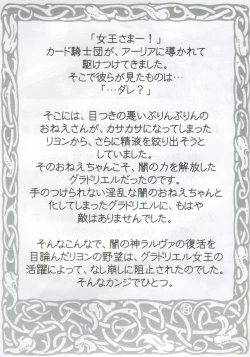 「女王さまー！」
カード騎士団が、アーリアに導かれて
駆けつけてきました。
そこで彼らが見たものは…
「…ダレ？」
そこには、目つきの悪いぷりんぷりんの
おねえさんが、カサカサになってしまった
リヨンから、さらに精液を絞り出そうと
していました。
そのおねえちゃんこそ、闇の力を解放した
グラドリエルだったのです。
手のつけられない淫乱な闇のおねえちゃんと
化してしまったグラドリエルに、もはや
敵はありませんでした。
そんなこんなで、闇の神ラルヴァの復活を
目論んだリヨンの野望は、グラドリエル女王の
活躍によって、なし崩しに阻止されたのでした。
そんなカンジでひとつ。